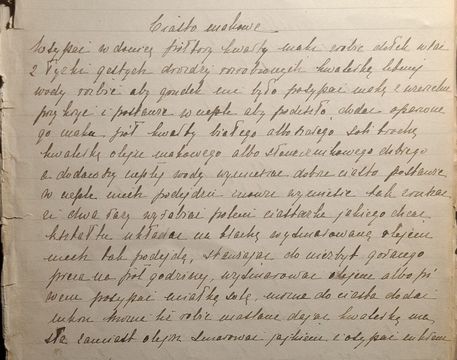 Ciasto makowe
Wsypać w donicę półtory kwarty mąki zrobić dołek wlać
2 łyżki gęstych drożdży rozrobionych kwaterką letniej
wody rozbić aby grudek nie było posypać mąką z wierzchu
przykryć i postawić w cieple aby podeszło, dodać sparzone
go maku pół kwarty białego albo soli trochę
kwaterkę oleju makowego albo słonecznikowego dobrego
a dodawszy ciepłej wody wymieszać dobrze ciasto postawić
w cieple niech podejdzie znowu wymiesić tak
dwa razy wyrabiać potem ciasteczka jakiego chcąc
kształtu układać na blachę wysmarowaną olejem
niech tak podejdą, stawiając do niezbyt gorącego
pieca na pół godziny, wysmarować olejem albo pi
wem posypać miałką solą, można do ciasta dodać
cukru można też robić maślane dając kwaterkę ma
sła zamiast oleju smarować jajkiem i osypać cukrem